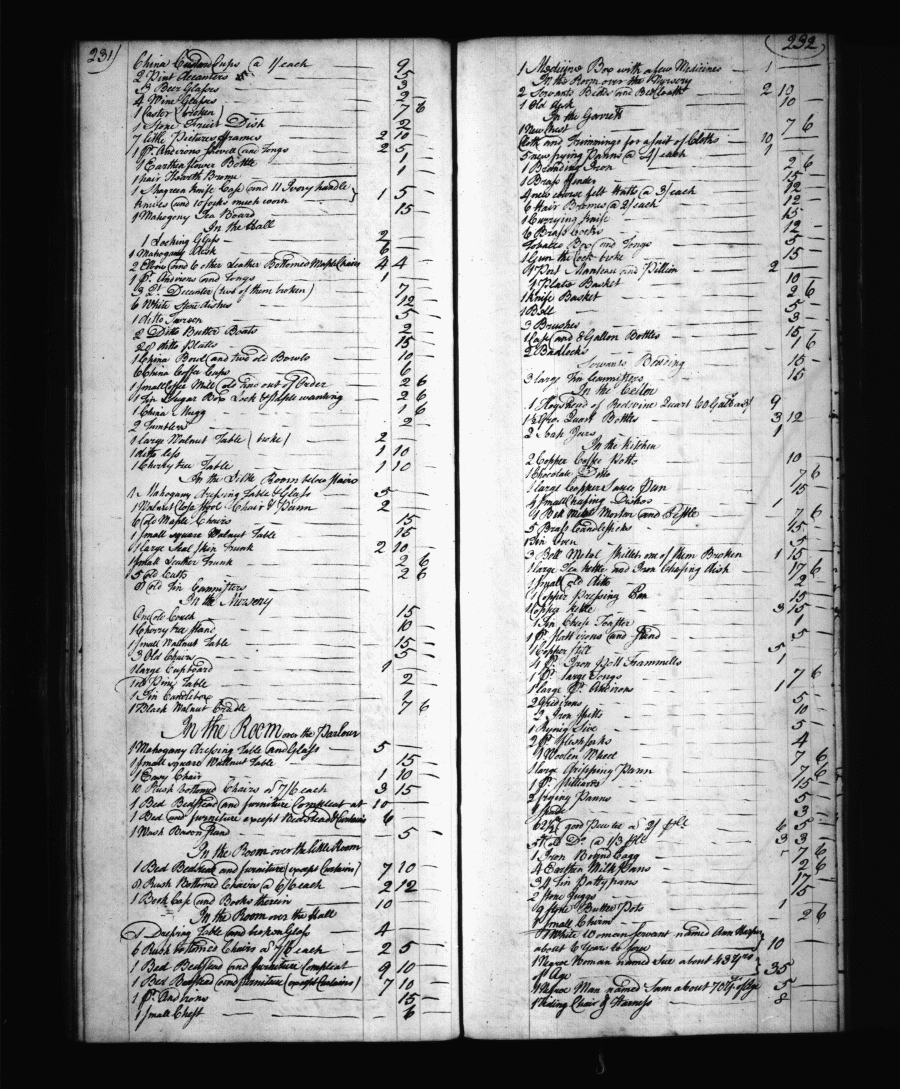 231
China Custard Cups @ 1/ each 9
2 Pint decanters 5
9 Beer Glasses 3
4 Wine Glasses 2
1 Castor (broken) 7 6
1 Stone Fruit Dish 2
7 little Pictures frames 2 10
1 Pr. Andirons Shovell and Tongs 2 5
1 Earthen flower Bottle 1
1 hair Hearth Broome 1
1 Shagreen Knife Case and 11 Ivory handle
knives and 10 forks much worn 1 5
1 Mahogony Tea Board 15
In the Hall
1 Looking Glass 2
1 Mahogany Desk 6
2 Elbow and 6 other Leather Bottomed Maple Chairs 4 4
1 Pr. Andirons and Tongs 1
3 Qt. Decanter (two of them broken) 7
6 White Stone dishes 12
1 ditto Tureen 5
2 Ditto Butter Boats 2
28 ditto Plates 15
1 China Bowl and two old Bowls 10
6 China Coffee Cups 6
1 Small Coffee Mill out of Order 2 6
1 Tin Sugar Box Lock & Staple wanting 2 6
1 China Mugg 1 6
2 Tumblers 2
1 large Walnut Table (broke) 2
1 ditto less 1 10
1 Cherry tree Table 1 10
In the Little Room below Stairs
1 Mahogany dressing Table & Glass 5
1 Walnut Close Stool Chair & Pann 2
6 Old Maple Chairs 15
1 small square Walnut Table 15
1 large Seal Skin Trunk 2 10
1 small Leather Trunk 2 6
5 Old Casks 2 6
8 Old Tin Cannisters
In the Nursery
One old Couch 15
1 Cherry tree Stand 10
1 Small Wallnut Table 15
3 Old Chairs 5
1 large Cupboard 1
1 old Pine Table 2
1 Tin Candlebox 2
1 Black Walnut Cradle 7 6
In the Room over the Parlour
1 Mahogany dressing Table and Glass 5
1 Small square Wallnut Table 15
1 Easy Chair 1 10
10 Rush bottomed Chairs @ 7/6 each 3 15
1 Bed Bedstead and furniture Compleat at 10
1 Bed and furniture except Bedstead & Curtains 6
1 Wash Bason Stand 5
In the Room over the little Room
1 Bed Bedstead and furniture (except Curtains) 7 10
8 Rush Bottomed Chairs @ 6/6 each 2 12
1 Book Case and Books therein 10
In the Room over the Hall
1 Dressing Table and broken Glass 4
6 Rush bottomed Chairs @ 7/6 each 2 5
1 Bed Bedstead and furniture Compleat 9 10
1 Bed Bedstead and furniture (except Curtains) 7 10
1 Pr. Andirons 15
1 Small Chest 6
232
1 Medicine Box with a few Medicines 1
In the Room over the Nursery
2 Servants Bedds and Bedcloaths 2 10
1 Old desk 10
In the Garrett
1 New Chest 7 6
Cloth and Trimmings for a suit of Cloths 10
5 new frying Panns @ 4/ each 1
1 Branding Iron 2 6
1 Brass fender 15
4 new course felt Hatts @ 3/ each 12
6 Hair Broomes @ 2/ each 12
1 Currying knife 15
6 Brass Cocks 12
Tobacco Box and Tongs 5
1 Gun the Lock broke 15
1 Port Manteau and Pillion 2
1 Plate Basket 10
1 Knife Basket 2 6
1 Bell 5
3 Brushes 3
1 Case and 8 Gallon Bottles 15
2 Padlocks 1 6
Servants Bedding 15
3 large Tin Cannisters 15
In the Celler
1 Hogshead of Redwine Quart 60 Galls 9
1½ Gro. Quart Bottles 3 12
2 Soap Jars 1
In the Kitchen
2 Copper Coffee Potts 10
1 Chocolate Ditto 7 6
1 large Copper Sauce Pan 15
4 Small Chafing Dishes 1
1 Bell Mettle Mortar and Pestle 7 6
5 Brass Candlesticks 15
1 Tin Oven 5
3 Bell Metal Skillets one of them Broken 1 15
1 large Tea kettle and Iron Chafing dish 17 6
1 Small old ditto 2
1 Copper Preserving Pan 15
1 Copper Kettle 3 15
1 Tin Cheese Toaster 1
1 Pr. flatt irons and Stand 5
1 Copper Still 5
4 Pr. Iron Pott Trammells 1
1 Pr. large Tongs
1 large Pr. Andirons 1 7 6
2 Gridirons 5
2 Iron Spitts 10
1 frying Sive 5
2 Pr. fleshforks 4
1 Woolen Wheel 7 6
1 large dripping Pann 7 6
1 Pr. Stilliards 15
2 frying Panns 5
1 Spade 3
62½ lb good Pewter @ 2/ ℔ lb 6 5
Old Do. @ 1/3 ℔ lb 3 3
1 Iron Bound Cagg 7 6
4 Earthen Milk Pans 2 6
34 Tin Pattypans 17
2 Stone Juggs 15
9 Stone Butter Pots 1
1 Small Churn 2 6
1 White Woman Servant named Ann
about 6 Years to serve 10
1 Negroe Woman named Sue about 43 Years
of Age 35
1 Negroe Man named Sam about 70 Yr of Age 5
1 Riding Chair & Harness 8